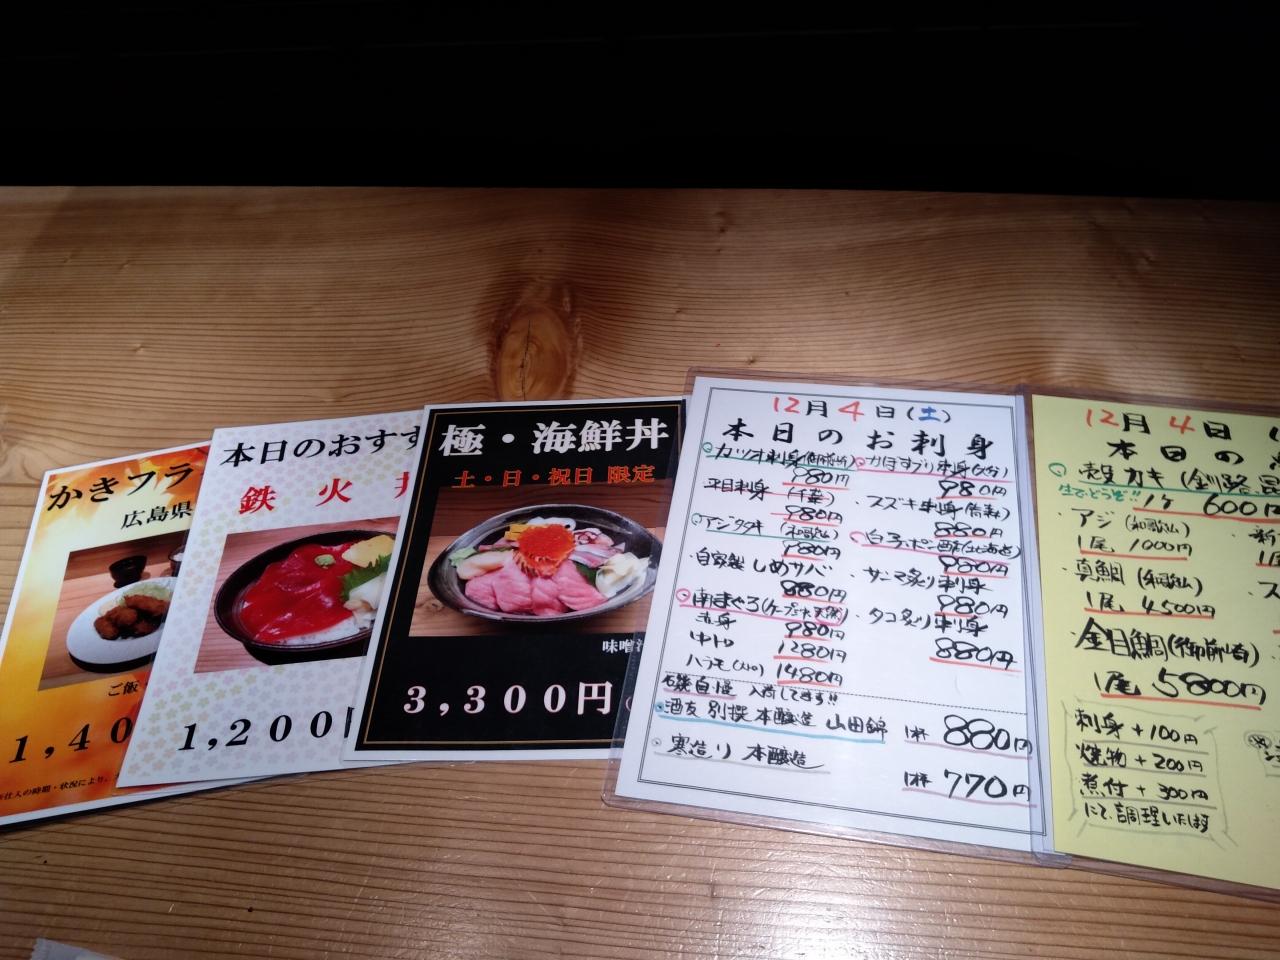 かきフラ
広島県
ご飯
1,40
仕入の時期・状況により、
本日のおすす
鉄火
1,200
極・海鮮丼
土・日・祝日 限定
味噌
3,300円
12月4日(土)
本日のお刺身
カツオ刺身(御前崎)
980円
平目刺身(千葉)
980円
アジタタキ(和歌山)
780円
自家製しめサバ
880円
南まぐろ(ケープ沖天然)
赤身 980円
中トロ 1280円
ハラモ 1480円
かぼすブリ刺身(大分)
980円
スズキ刺身(青森)
880円
白子ポン酢(北海道)
980円
サンマ炙り刺身
980円
タコ炙り刺身
880円
磯自慢 入荷してます!!
酒友 別撰 本醸造 山田錦 1杯 880円
寒造り 本醸造
1杯 770円
12月4日
本日の
殻カキ(釧路
生でどうぞ!! 1ケ 600円
アジ(和歌山)
1尾 1000円
真鯛(和歌山)
1尾 4,500円
金目鯛(御前崎)
1尾 5800円
刺身+100円
焼物+200円
煮付+300円
にて、調理いたします